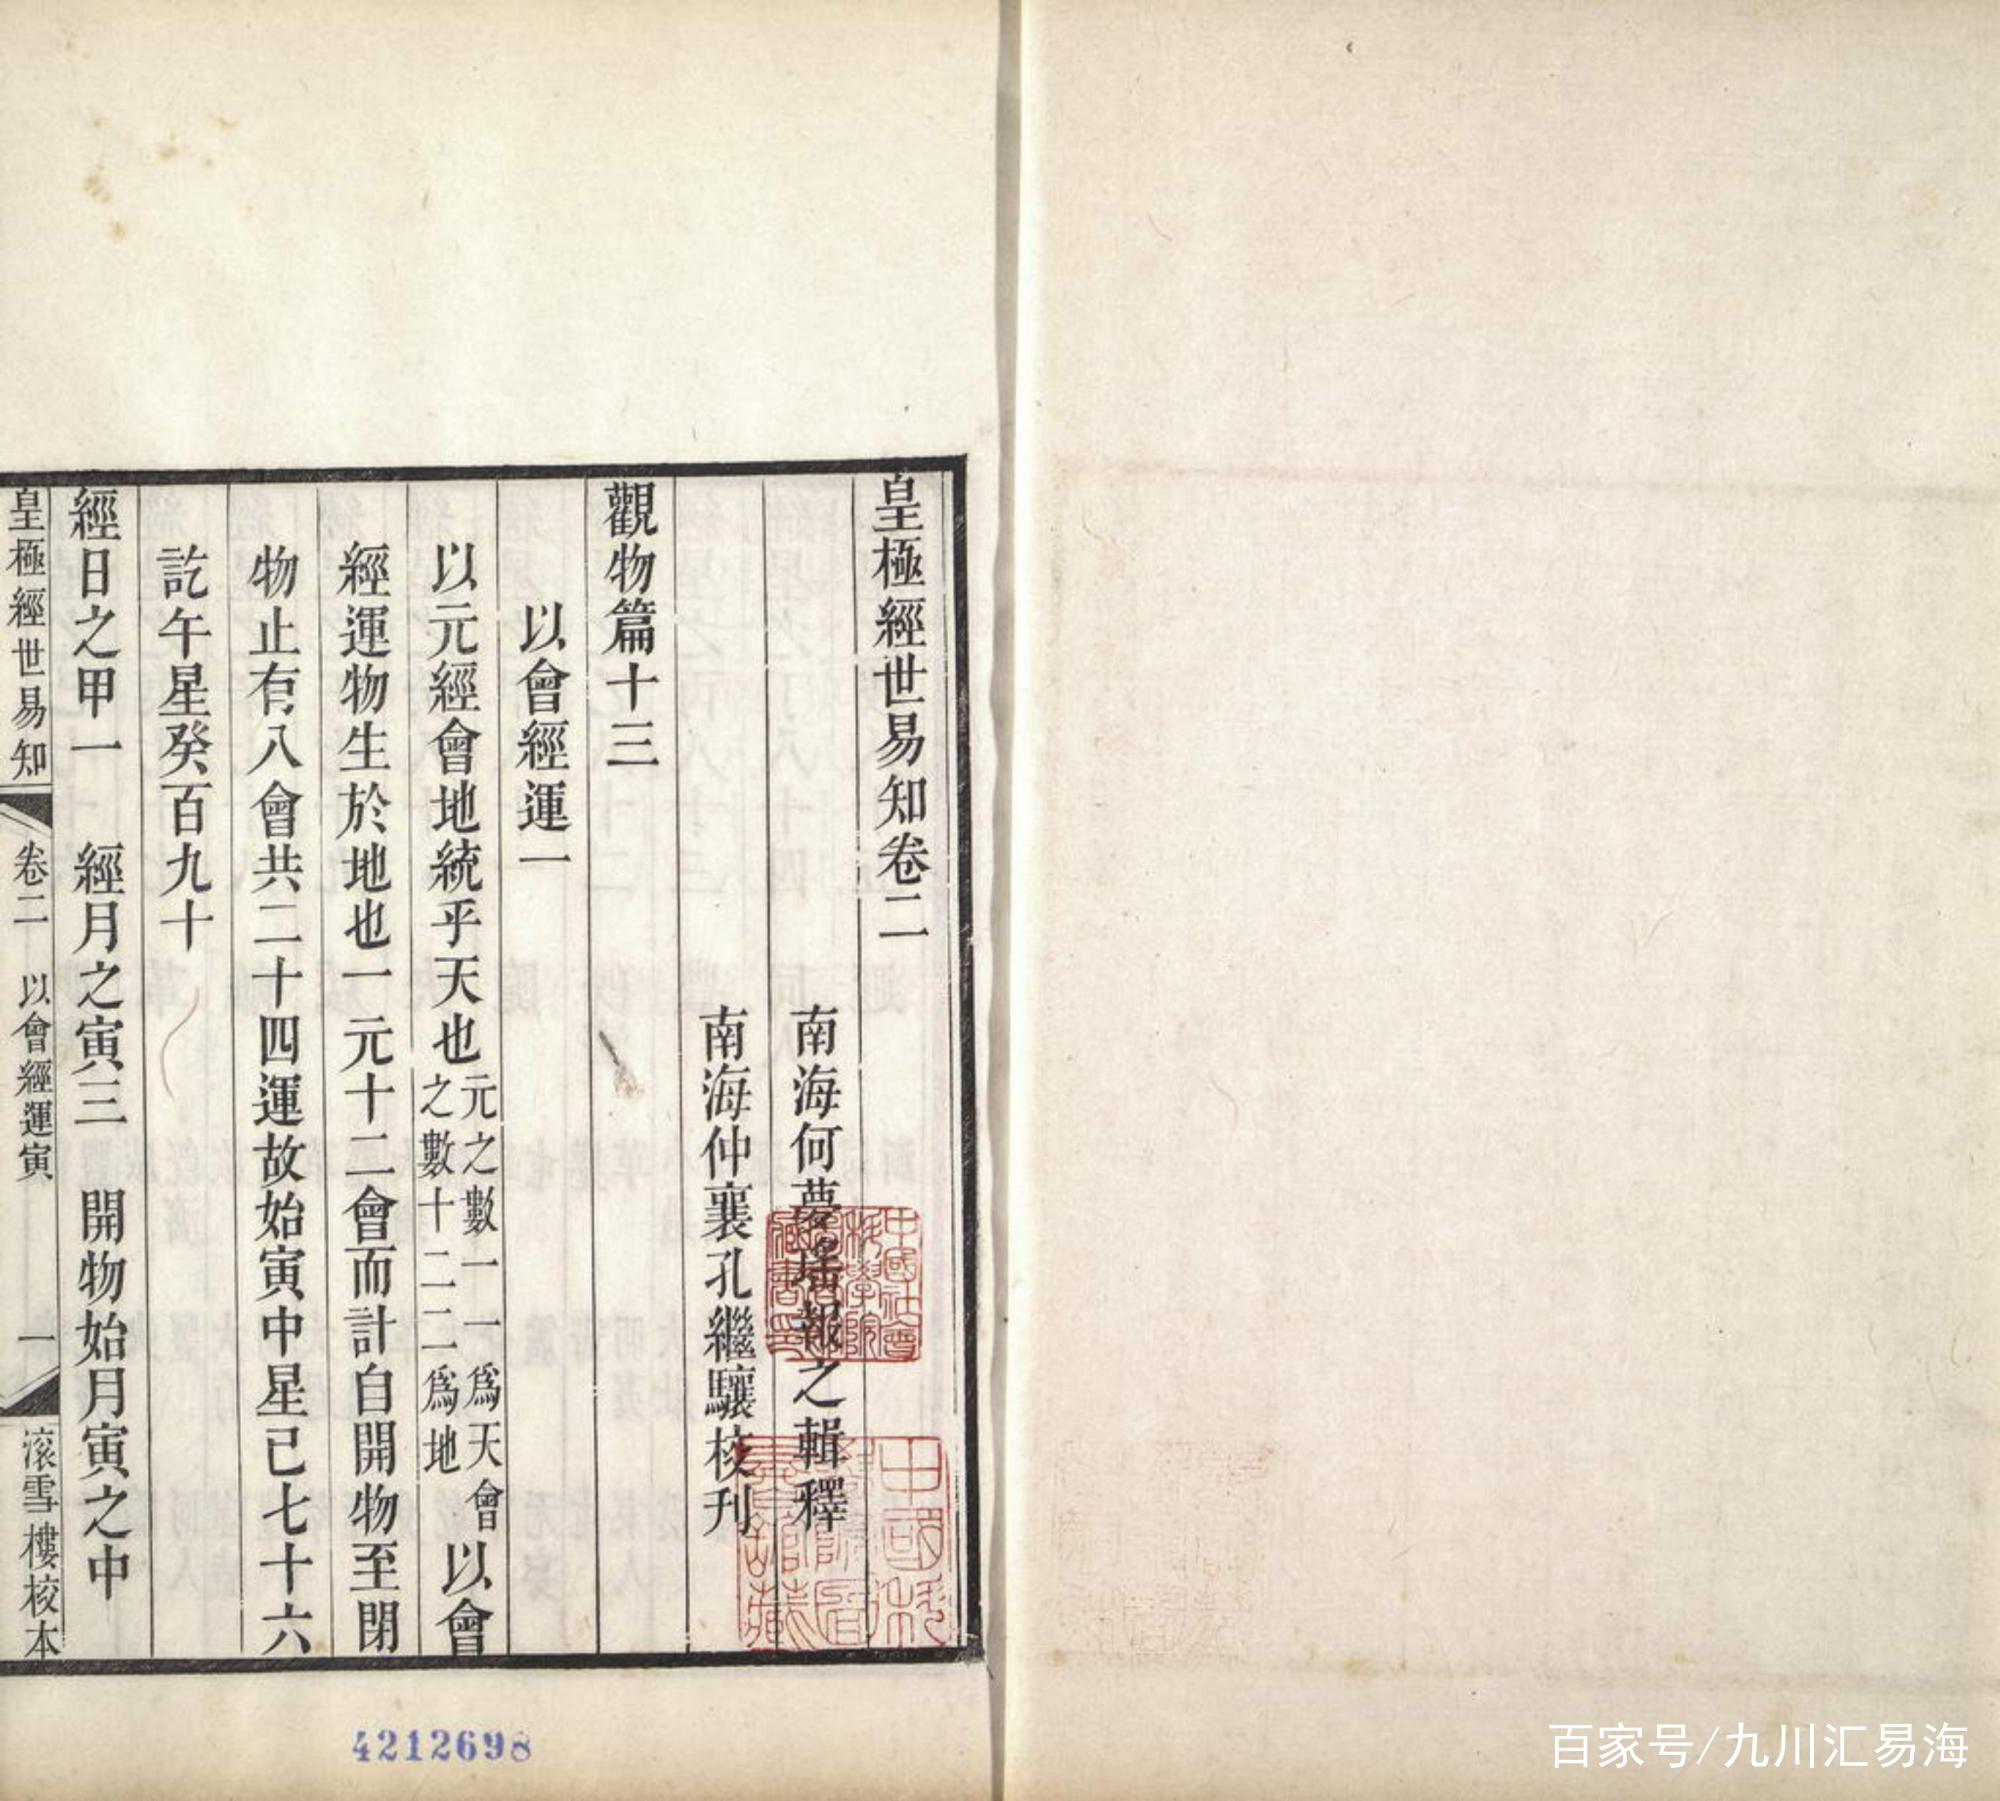 皇極經世易知卷二
南海何夢瑤報之輯釋
南海仲襄孔繼驤校刊
觀物篇十三
以會經運一
以元經會地統乎天也元之數一一爲天會之數十二二爲地以會
經運物生於地也一元十二會而計自開物至閉
物止有八會共二十四運故始寅中星已七十六
訖午星癸百九十
經日之甲一 經月之寅三 開物始月寅之中
皇極經世易知 卷二 以會經運寅 一 滚雪樓校本
中國社會科學院
藏書印
中國科
4212698
百家号/九川汇易海